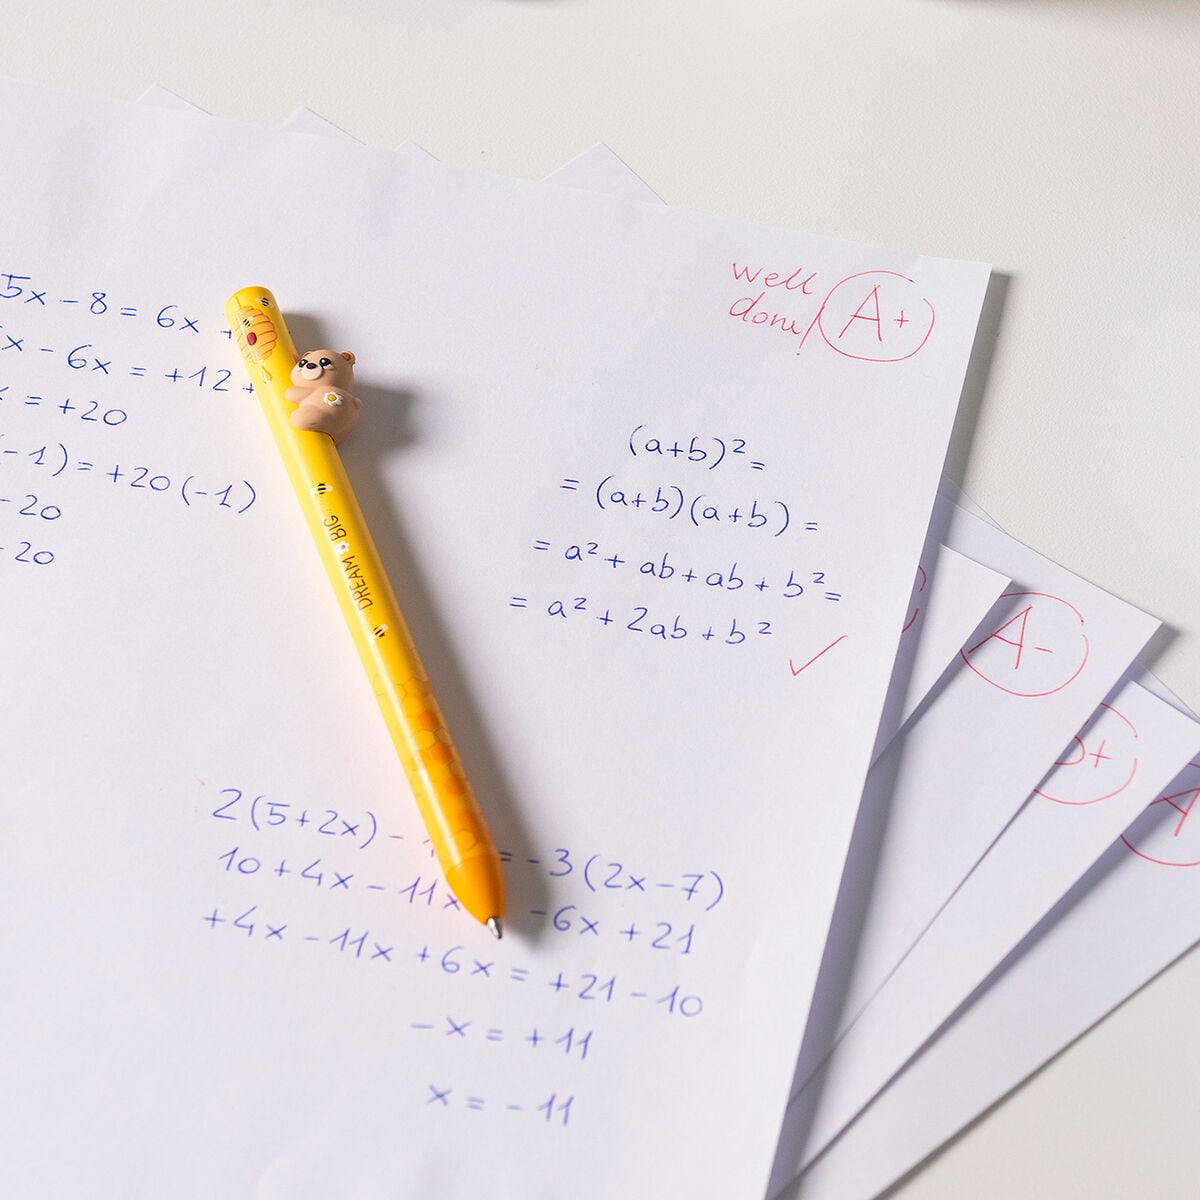 well
done!
A+
5x - 8 = 6x +
x - 6x = +12 +
= +20
-1) = +20 (-1)
- 20
20
DREAM BIG
(a+b)² =
= (a+b)(a+b) =
= a² + ab + ab + b² =
= a² + 2ab + b²
2(5+2x) - = -3(2x-7)
10 + 4x - 11x -6x + 21
+4x - 11x + 6x = +21 - 10
-x = +11
x = -11
A-
+
A